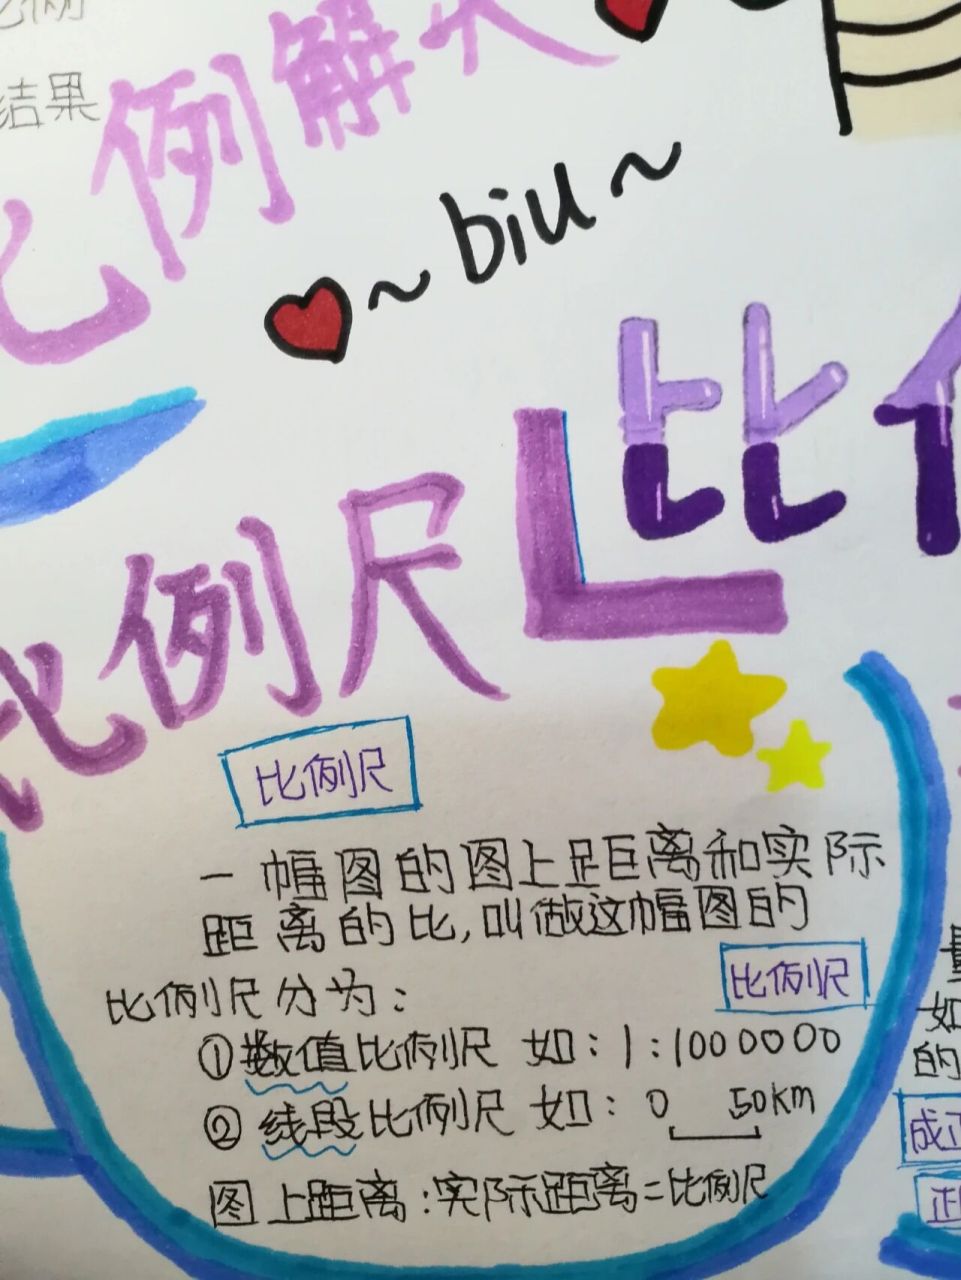 比例
结果
比例解决
~biu~
比例
比例尺
比例尺
一幅图的图上距离和实际
距离的比,叫做这幅图的
比例尺
比例尺分为:
①数值比例尺 如:1:1000000
②线段比例尺 如:0 50km
图上距离:实际距离=比例尺
量
如
的
成正
正